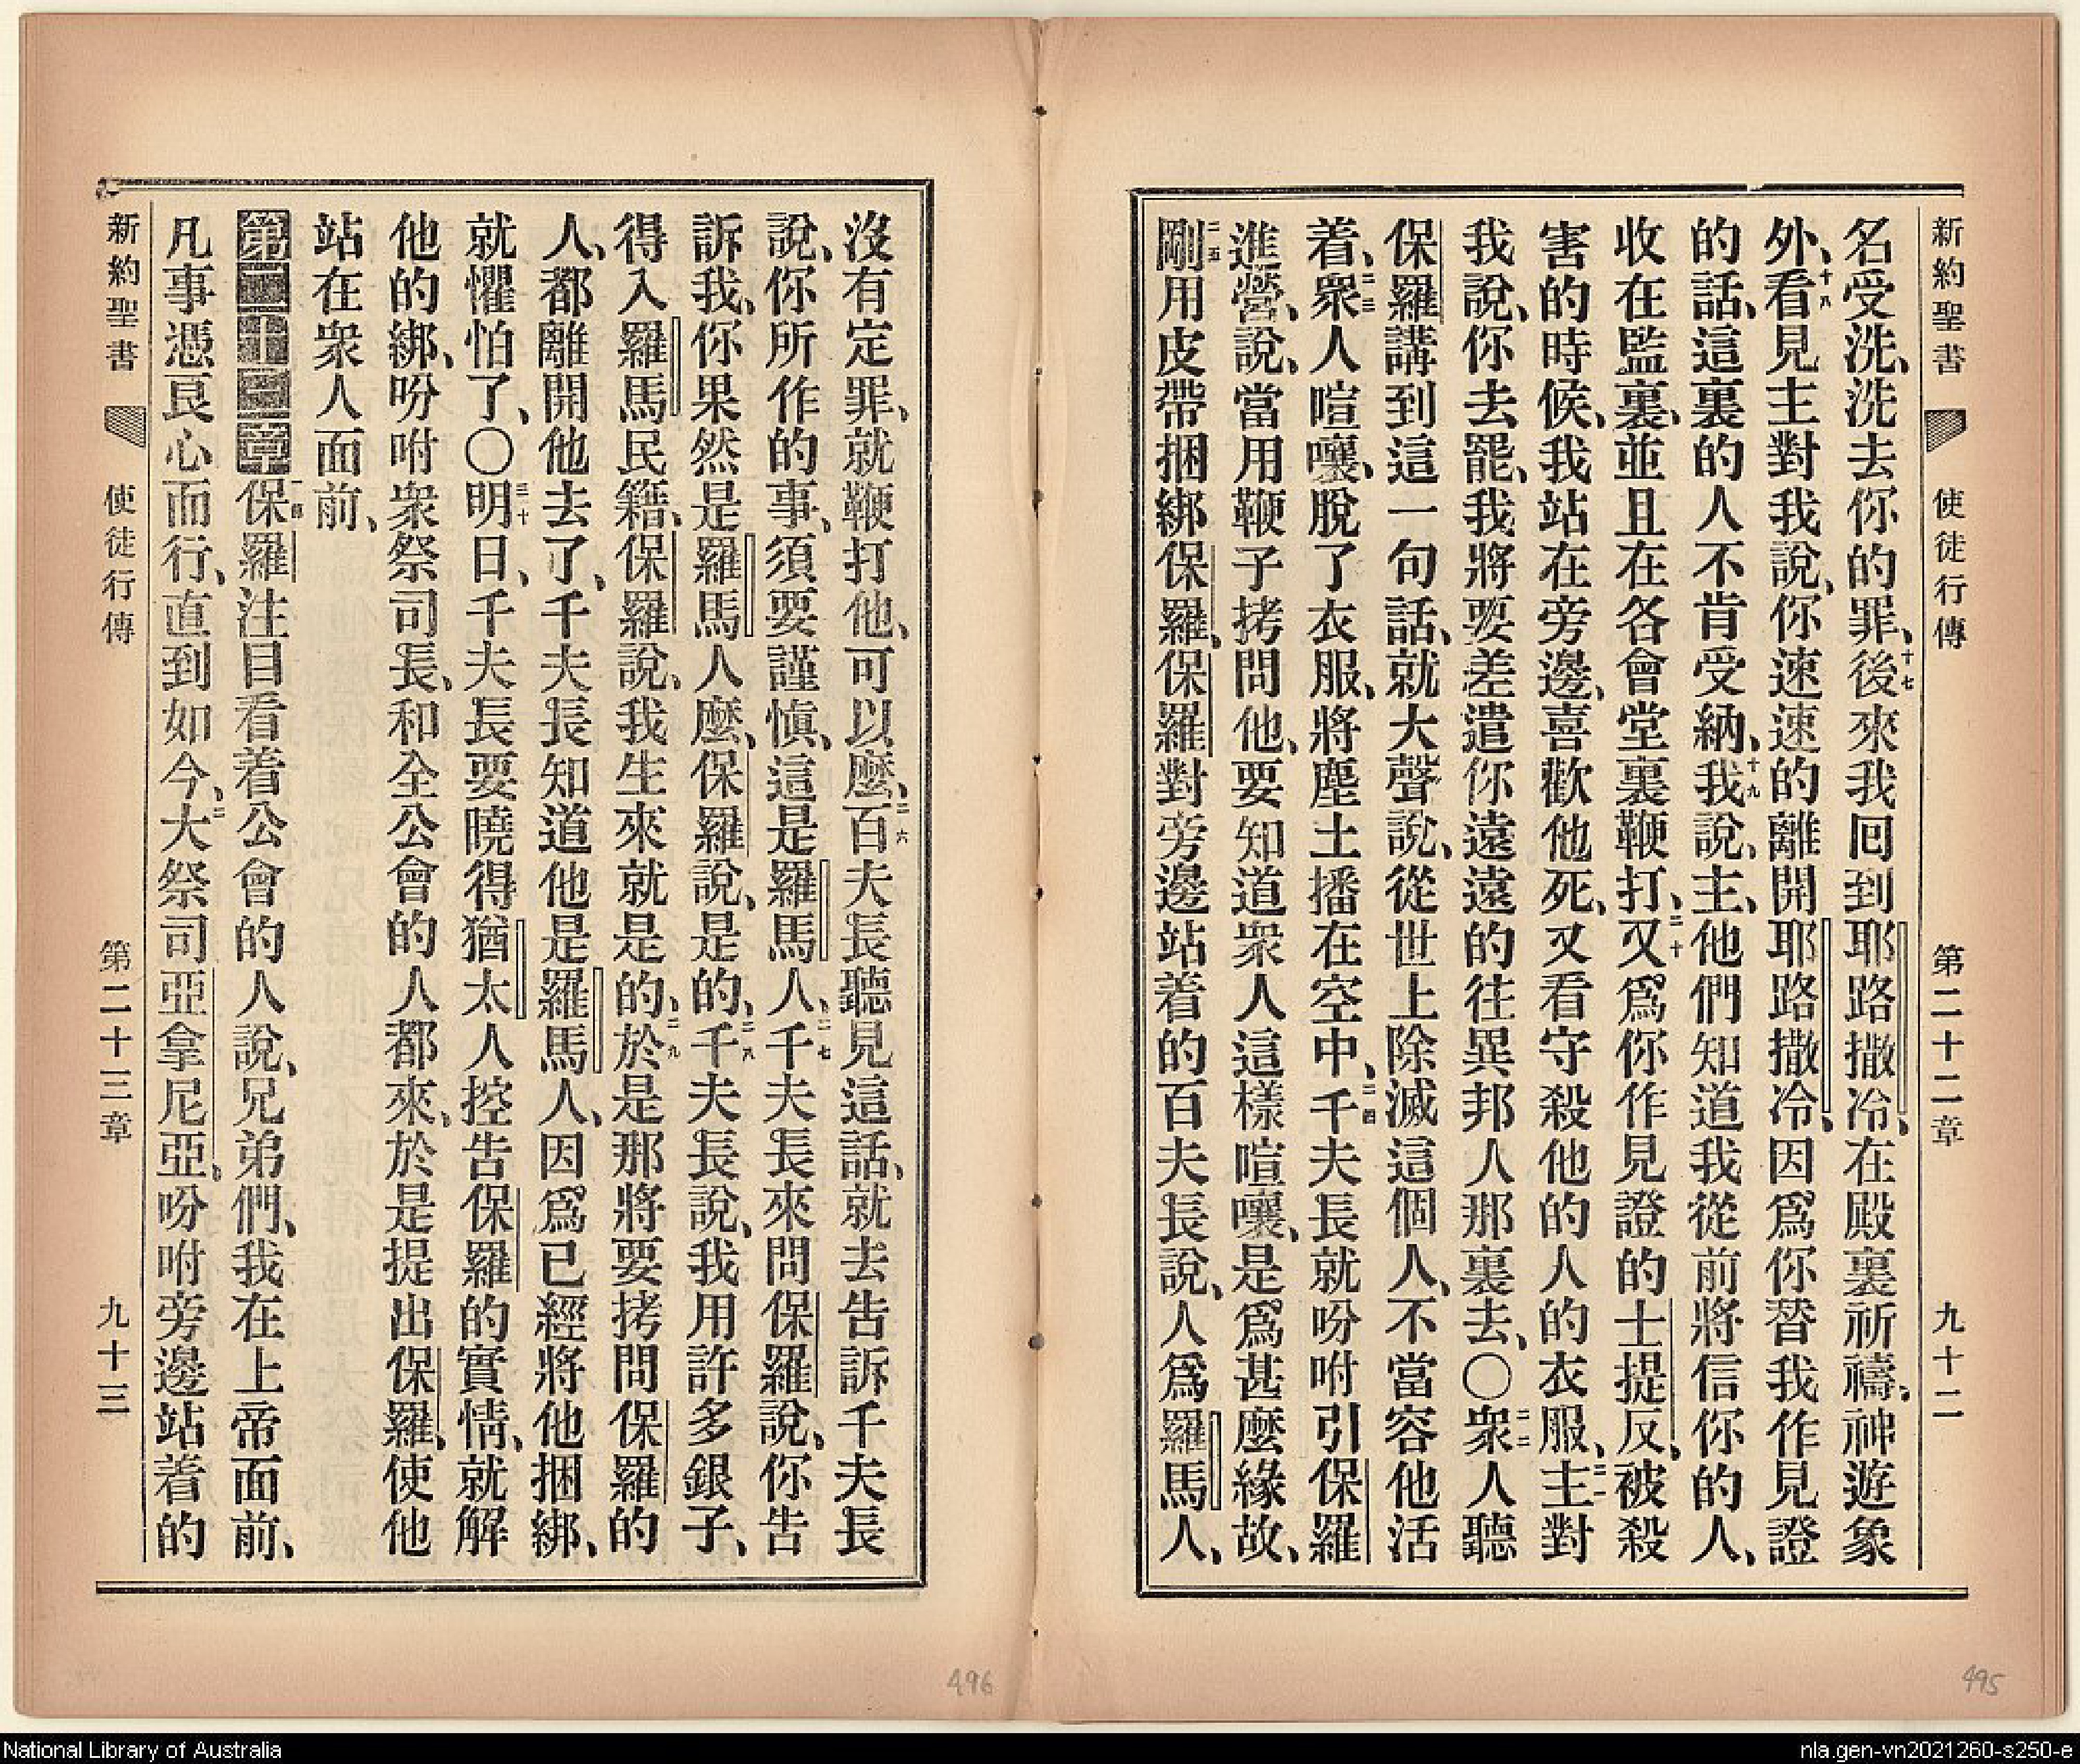 新約聖書 使徒行傳 第二十二章 九十二
名受洗、洗去你的罪、十七後來我回到耶路撒冷、在殿裏祈禱、神遊象
外、十八看見主對我說、你速速的離開耶路撒冷、因爲你替我作見證
的話、這裏的人不肯受納、十九我說、主、他們知道我從前將信你的人、
收在監裏、並且在各會堂裏鞭打、二十又爲你作見證的士提反、被殺
害的時候、我站在旁邊、喜歡他死、又看守殺他的人的衣服、二一主對
我說、你去罷、我將要差遣你遠遠的往異邦人那裏去、〇二二衆人聽
保羅講到這一句話、就大聲說、從世上除滅這個人、不當容他活
着、二三衆人喧嚷、脫了衣服、將塵土播在空中、二四千夫長就吩咐引保羅
進營、說、當用鞭子拷問他、要知道衆人這樣喧嚷、是爲甚麼緣故、
二五剛用皮帶捆綁保羅、保羅對旁邊站着的百夫長說、人爲羅馬人、
沒有定罪、就鞭打他、可以麼、二六百夫長聽見這話、就去告訴千夫長
說、你所作的事、須要謹愼、這是羅馬人、二七千夫長來問保羅說、你告
訴我、你果然是羅馬人麼、保羅說、是的、二八千夫長說、我用許多銀子、
得入羅馬民籍、保羅說、我生來就是的、二九於是那將要拷問保羅的
人、都離開他去了、千夫長知道他是羅馬人、因爲已經將他捆綁、
就懼怕了、〇三十明日、千夫長要曉得猶太人控告保羅的實情、就解
他的綁、吩咐衆祭司長、和全公會的人都來、於是提出保羅、使他
站在衆人面前、
第二十三章 一節保羅注目看着公會的人說、兄弟們、我在上帝面前、
凡事憑良心而行、直到如今、二大祭司亞拿尼亞、吩咐旁邊站着的
新約聖書 使徒行傳 第二十三章 九十三
496
495
National Library of Australia
nla.gen-vn2021260-s250-e